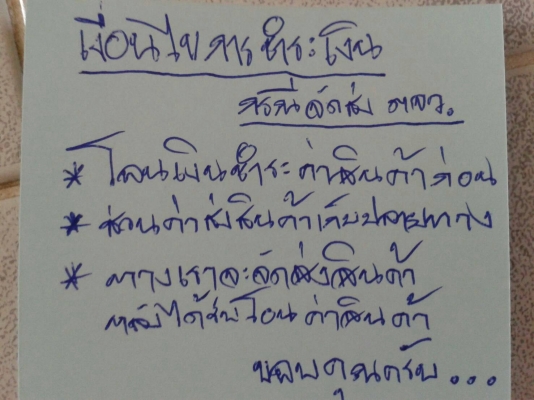 เงื่อนไขการชำระเงิน
กรณีจัดส่ง ตจว.
* โอนเงินชำระค่าสินค้าก่อน
* ส่วนค่าส่งสินค้าเก็บปลายทาง
* ทางเราจะจัดส่งสินค้า
หลังได้รับโอนค่าสินค้า
ขอบคุณครับ...